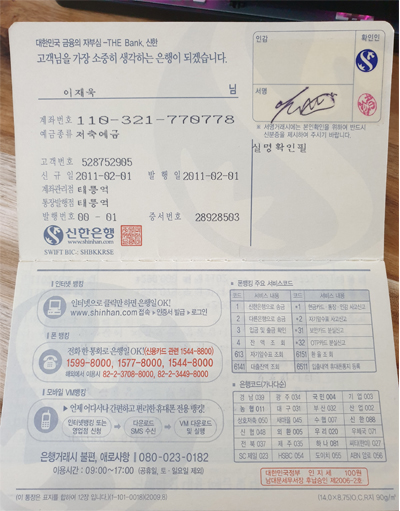 대한민국 금융의 자부심-THE Bank, 신한
고객님을 가장 소중히 생각하는 은행이 되겠습니다.
인감
확인인
이재욱 님
서명
계좌번호 110-321-770778
예금종류 저축예금
※ 서명거래시에는 본인확인을 위하여 반드시
신분증을 제시하여 주시기 바랍니다.
실명확인필
고객번호 528752905
신규일 2011-02-01 발행일 2011-02-01
계좌관리점 태릉역
통장발행점 태릉역
발행번호 00 - 01 증서번호 28928503
신한은행
www.shinhan.com
SWIFT BIC : SHBKKRSE
인터넷 뱅킹
인터넷으로 클릭만 하면 은행일 OK!
www.shinhan.com 접속 > 인증서 발급 > 로그인
폰 뱅킹
전화 한 통화로 은행일 OK! (신용카드 관련 1544-8800)
1599-8000, 1577-8000, 1544-8000
해외에서 이용시 82-2-3708-8000, 82-2-3449-8000
모바일 VM뱅킹
언제 어디서나 간편하고 편리한 휴대폰 전용 뱅킹!
인터넷뱅킹 또는 영업점 신청
다운로드 SMS 수신
VM 다운로드 및 실행
은행거래시 불편, 애로사항 080-023-0182
이용시간 : 09:00~17:00 (공휴일, 토·일요일 제외)
* 폰뱅킹 주요 서비스코드
코드 서비스 내용 코드 서비스 내용
1 신한은행으로 송금
2 다른은행으로 송금
3 입금 및 출금 확인
4 잔액 조회
613 자기앞수표 조회
6141 대출잔액 조회
* 은행코드(가나다순)
경남 039 광주 034 국민 004 기업 003
농협 011 대구 031 부산 032 산업 002
신한 088
신협 048 외환 005 우리 020 우체국 071
전북 037 제주 035 하나 081
SC제일 023 HSBC 054 도이치 055 ABN 암로 056
대한민국정부 인지세 100원
남대문세무서장 후납승인 제2006-2호